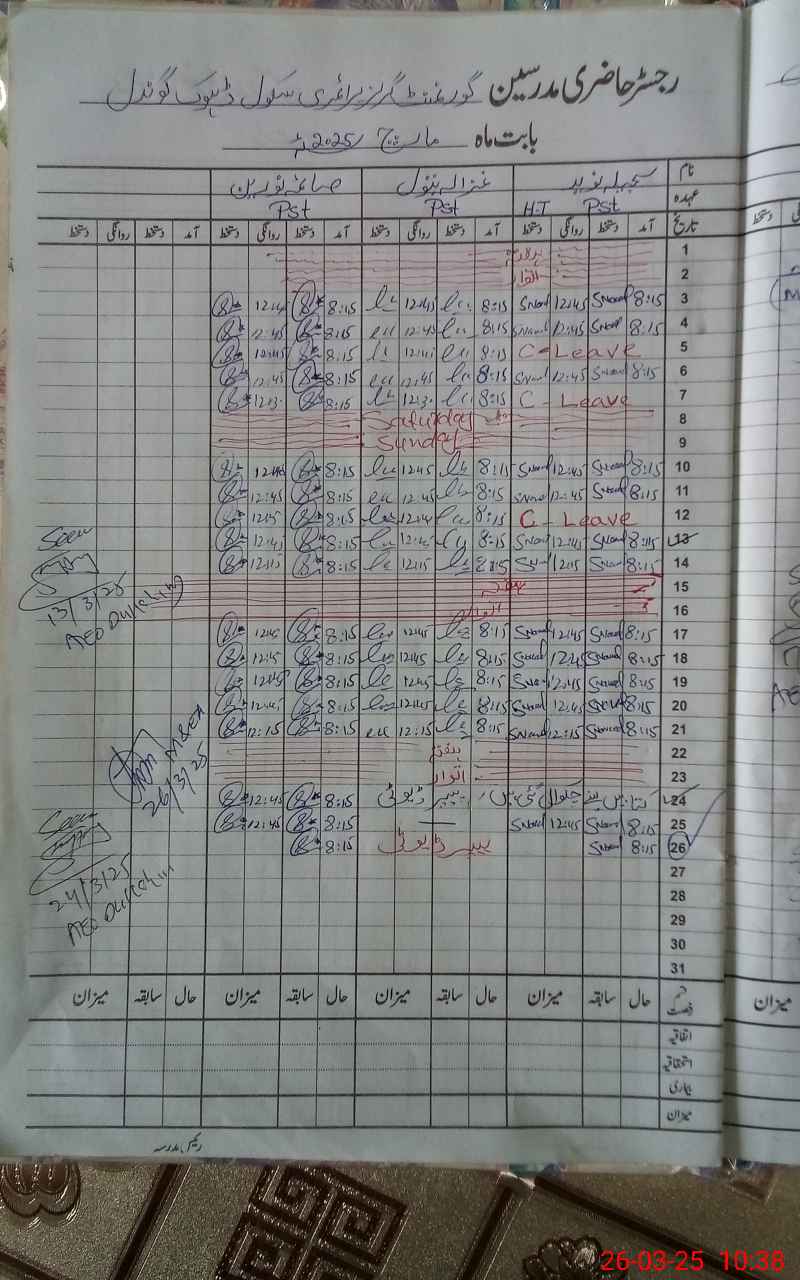 رجسٹر حاضری مدرسین گورنمنٹ گرلز پرائمری سکول ڈہوک گوندل
بابت ماہ مارچ 2025ء
نام غزالہ بتول صائمہ نورین
عہدہ Pst H.T Pst Pst
تاریخ آمد دستخط روانگی دستخط آمد دستخط روانگی دستخط آمد دستخط روانگی دستخط آمد دستخط روانگی دستخط
1
2 اتوار
3 8:15 12:45 8:15 12:45 8:15 12:45
4 8:15 12:45 8:15 12:45 8:15 12:45
5 C-Leave 8:15 12:45 8:15 12:45
6 8:15 12:45 8:15 12:45 8:15 12:45
7 C-Leave 8:15 12:30 8:15 12:30
8 Saturday
9 Sunday
10 8:15 12:45 8:15 12:45 8:15 12:45
11 8:15 12:45 8:15 12:45 8:15 12:45
12 C-Leave 8:15 12:45 8:15 12:45
13 8:15 12:45 8:15 12:45 8:15 12:45
14 8:15 12:15 8:15 12:15 8:15 12:15
Seen
13/3/25
AEO
15 ہفتہ
16 اتوار
17 8:15 12:45 8:15 12:45 8:15 12:45
18 8:15 12:45 8:15 12:45 8:15 12:45
19 8:15 12:45 8:15 12:45 8:15 12:45
20 8:15 12:45 8:15 12:45 8:15 12:45
21 8:15 12:15 8:15 12:15 8:15 12:15
22 ہفتہ
23 اتوار
MEA
26/3/25
24 پیپر ڈیوٹی 8:15 12:45
25 8:15 12:45 8:15 12:45
26 8:15 پیپر ڈیوٹی 8:15
Seen
24/3/25
AEO
27
28
29
30
31
قسم رخصت حال سابقہ میزان حال سابقہ میزان حال سابقہ میزان حال سابقہ میزان
اتفاقیہ
استحقاقیہ
بیماری
میزان
میزان
26-03-25 10:38